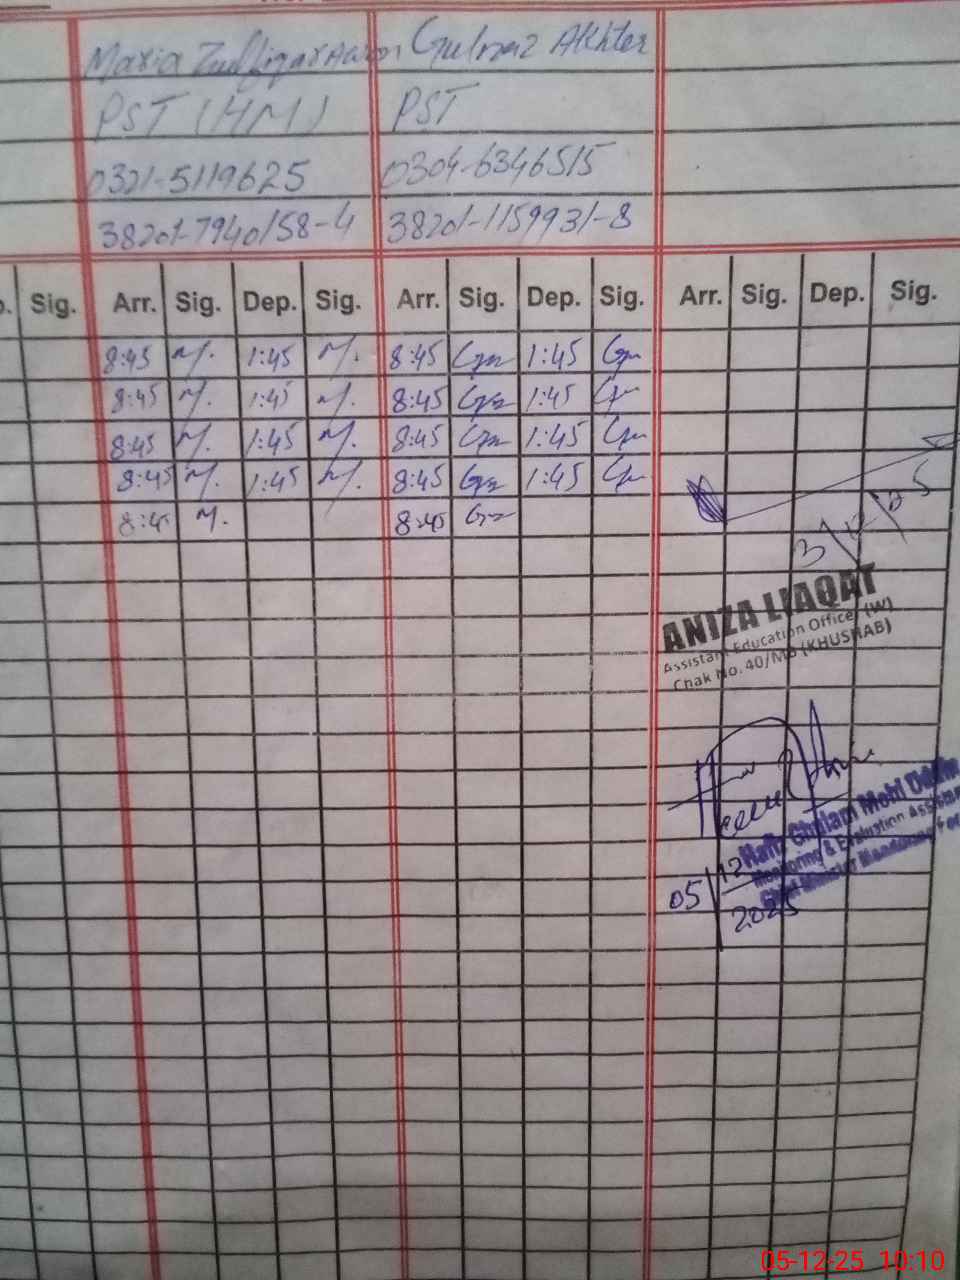 Maria Zulfiqar Awan Gulnaz Akhter
PST (HM) PST
0321-5119625 0304-6346515
38201-7940158-4 38201-1159931-8
Sig. Arr. Sig. Dep. Sig. Arr. Sig. Dep. Sig. Arr. Sig. Dep. Sig.
8:45 M. 1:45 M. 8:45 1:45
8:45 M. 1:45 M. 8:45 1:45
8:45 M. 1:45 M. 8:45 1:45
8:45 M. 1:45 M. 8:45 1:45
8:45 M. 8:45
ANIZA LIAQAT
Assistant Education Officer (W)
Chak No. 40/MB (KHUSHAB)
Ghulam Mohi
Monitoring & Evaluation Assistant
Chief Minister Monitoring
05/12
2025
05-12-25 10:10